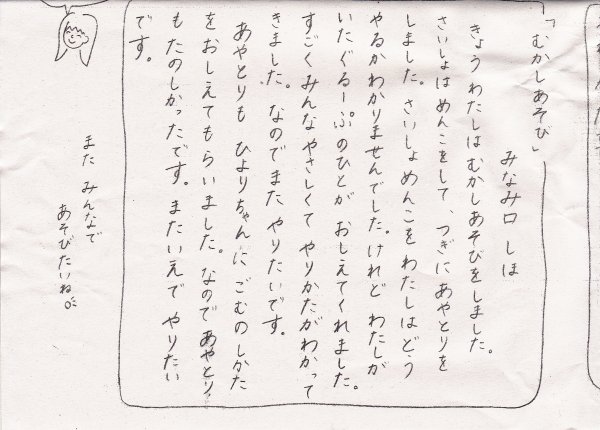 「むかしあそび」
みなみ口 しほ
きょうわたしはむかしあそびをしました。
さいしょはめんこをして、つぎにあやとりを
しました。さいしょめんこをわたしはどう
やるかわかりませんでした。けれど わたしが
いたぐるーぷのひとが おしえてくれました。
すごくみんなやさしくて やりかたがわかって
きました。なのでまた やりたいです。
あやとりも ひよりちゃんに ごむのしかた
をおしえてもらいました。なので あやとり
もたのしかったです。またいえで やりたい
です。
また みんなで
あそびたいね。